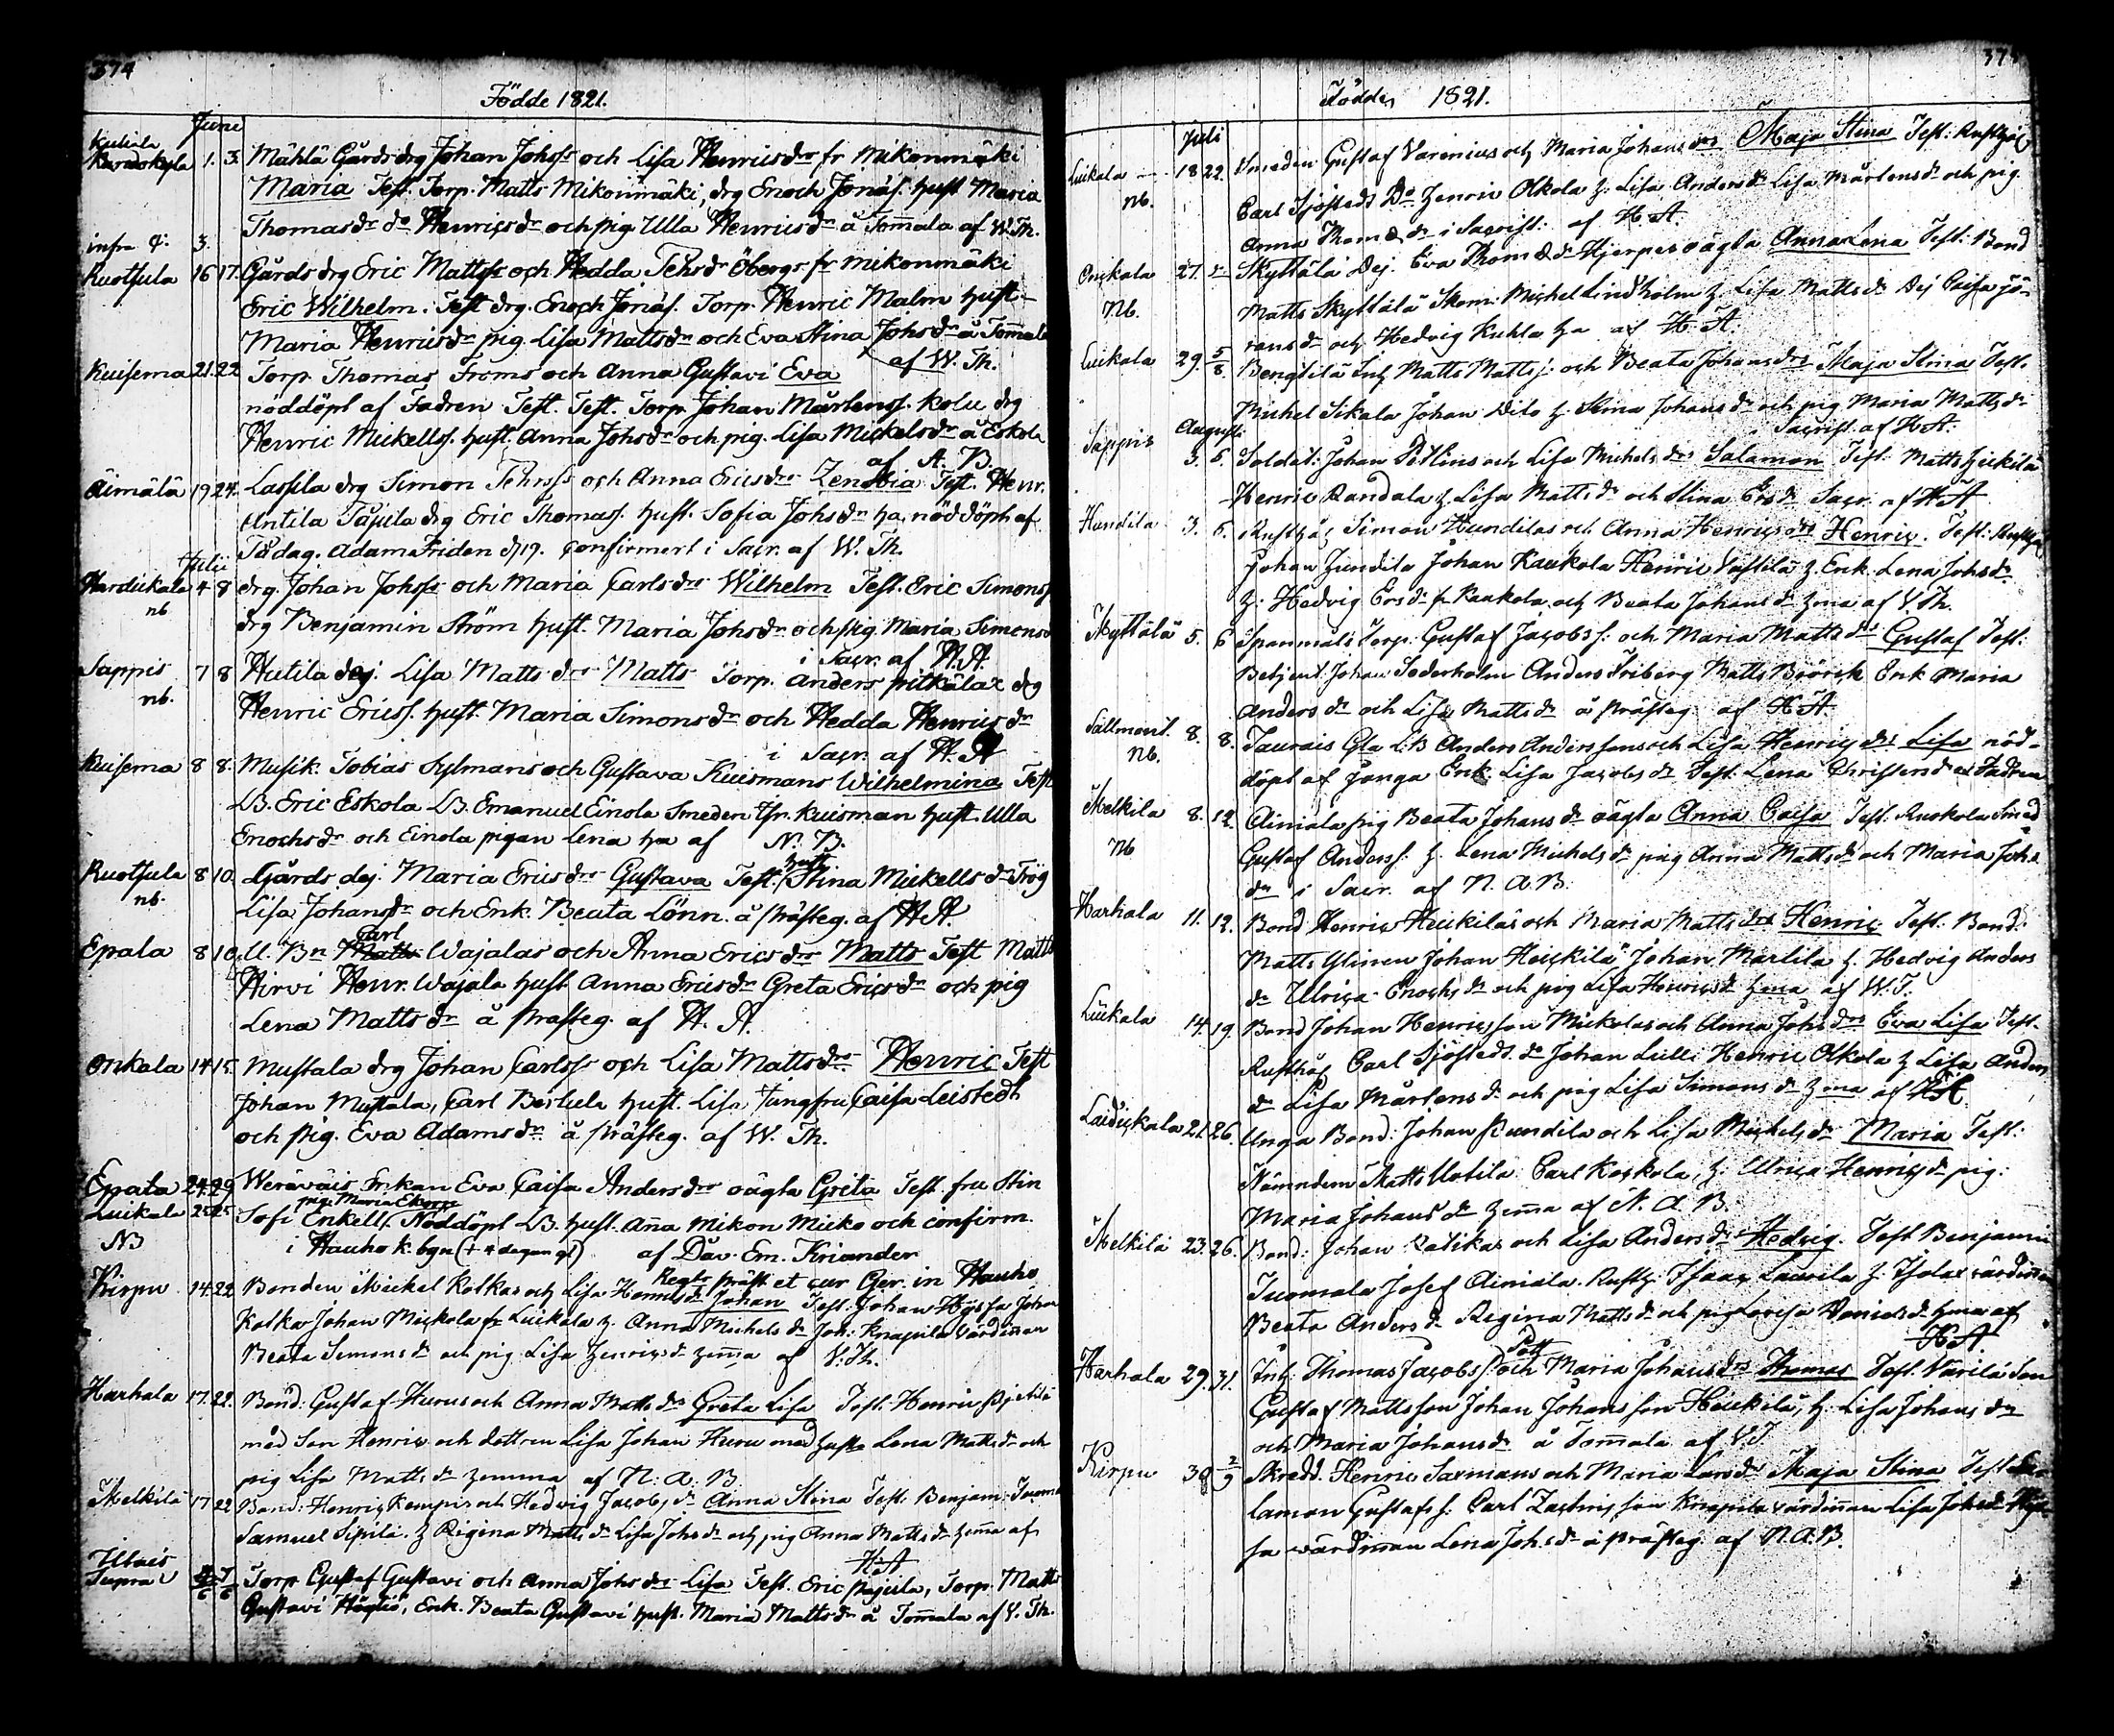 374
Födde 1821.
Juni
Kuliala 1. 3. Mähla Gårds drg Johan Johss och Lisa Henricsdrs fr Mikonmäki
Maria Test. Torp. Matts Mikonmäki, drg Enoch Jonäs. hust Maria
Thomasdr do Henricsdr och pig Ulla Henricsdr å Tom̄ala af W. Th.
infra 3.
Ruotsula 16 17. Gårds drg Eric Mattsss och Hedda Tehsdr Öbergs fr Mikonmäki
Eric Wilhelm. Test drg. Enoch Jonäs. Torp. Henric Malm hust
Maria Henricsdr pig. Lisa Mattsdr och Eva Stina Johsdr å Tom̄ala
af W. Th.
Kuisema 21. 22 Torp. Thomas Froms och Anna Gustavi Eva
nöddöpt af Fadren Test. Test. Torp. Johan Mårtenss. Kolu drg
Henric Mickellss. hust. Anna Johsdr och pig. Lisa Mickelsdr å Eskola
af A. B.
Äimälä 19 24. Lassila drg Simon Tehnss och Anna Ericsdrs Zenobia Test. Henr.
Antila Päjula drg Eric Thomass. hust. Sofia Johsdr ha nöddöpt af
Pådag. Adam Friden d 19. confirmert i Sacr. af W. Th.
Julii
Hardickala 4 8 drg. Johan Johss och Maria Carlsdrs Wilhelm Test. Eric Simonss
nb drg Benjamin Ström hust. Maria Johsdr och pig. Maria Simonsd
i Sacr. af H. A.
Sappis 7 8 Hutila dej. Lisa Mattsdrs Matts Torp. Anders Pitkälax drg
nb. Henric Ericss. hust. Maria Simonsdr och Hedda Henricsdr
i Sacr. af H. A
Kuisema 8 8. Musik. Tobias Sylmans och Gustava Kuismans Wilhelmina Test
LB. Eric Eskola LB. Emanuel Einola Smeden Thr. Kuisman hust. Ulla
Enochsdr och Einola pigan Lena ha af N. B.
Ruotsula 8 10. Gårds dej. Maria Ericsdrs Gustava Test. hust Stina Mickellsdr Trög
nb. Lisa Johansdr och Enk. Beata Lönn. å prästeg. af H. A.
Epala 8 10. U. Bn Carl Wajalas och Anna Ericsdrs Matts Test Matts
Hirvi Henr. Wajala hust Anna Ericsdr Greta Ericsdr och pig
Lena Mattsdr å prasteg. af H. A.
Onkala 14 15. Mustala drg Johan Carlsss och Lisa Mattsdrs Henric Test
Johan Mustala, Carl Berttula hust. Lisa Jungfru Caisa Leistedt
och pig. Eva Adamsdr å prästeg. af W. Th.
Epala 24 29 Werävais Enkan Eva Caisa Andersdrs oägta Greta Test fru Stin
pig. Maria Ekorre
Luikala 25 25 Sofi Enkell. Nöddöpt LB. hust. Ana Mikon Micko och confirm.
NB i Hauho k. bgn (+ 4 dagan gl) af Dav. Em. Kriander
Regts präst et cur Ger. in Hauho
Kirpu 14. 22 Bonden Mickel Kolkas och Lisa Henricsdr Johan Test. Johan Hyssa Johan
Kolka Johan Mickola fr Luikala h. Anna Michelsdr Joh: Knapila Värdinan
Beata Simonsdr och pig Lisa Henricsdr hem̄a af V. Th.
Harhala 17. 22. Bond: Gustaf Hurus och Anna Mattsdrs Greta Lisa Test. Henric
med Son Henric och dottren Lisa Johan Huru med husta Lena Mattsdr och
pig Lisa Mattsdr hemma af N. A. B.
Melkilä 17. 22 Bond: Henric Kempis och Hedvig Jacobsdr Anna Stina Test. Benjam: Tuoma
Samuel Sipilä. h Regina Mattsdr Lisa Johsdr och pig Anna Mattsdr hem̄a af
H. A
Supra Torp Gustaf Gustavi och Anna Johsdrs Lisa Test. Eric Pajula, Torp. Matts
Gustavi Höglö, Enk. Beata Gustavi hust. Maria Mattsdr å Tom̄ala af V. Th.
Födde 1821.
Juli
Luikala 18 22. Smeden Gustaf Varenius och Maria Johansdrs Maja Stina Test: Rusth
nb. Carl Sjöstedt Do Henric Olkola h. Lisa Andersdr Lisa Mårtensdr och pig
Anna Thom æ dr i Sacrist: af H. A.
Onkala 27. Skyttälä Dej. Eva Thom æ dr Hjerpes oägta Anna Lena Test: Bond
Nb. Matts Skyttälä Skom: Michel Lindholm h. Lisa Mattsdr Dej Caisa Jö-
ransdr och Hedvig Kuhla ha af H. A.
Luikala 29. 5/8. Bengtilä Inh Matts Mattss: och Beata Johansdrs Maja Stina Test.
Michel Sikala Johan Dito h. Stina Johansdr och pig Maria Mattsdr
Sacrist. af H A.
Augusti
Sappis 3. 5. Soldat: Johan Petlins och Lisa Michelsdrs Salamon Test. Matts Heickilä
Henric Randala h. Lisa Mattsdr och Stina Ersdr Sacr. af H. A
Hundila 3. 5. Rusth Simon Hundilas och Anna Henricsdrs Henric. Test: Rusth
Johan Hundila Johan Kaukola Henric Vastila h. Enk. Lena Johsdr
h. Hedvig Ersdr fr Kaukola och Beata Johansdr hema af V. Th.
Skyttälä 5. 6 Spanmåls Torp. Gustaf Jacobss: och Maria Mattsdrs Gustaf Test:
Betjent. Johan Söderholm Anders Friberg Matts Enk Maria
Andersdr och Lisa Mattsdr å prästeg. af H. A.
Sallment. 8. 8. Taurais Gla LB Anders Anderssons och Lisa Henricsdrs Lisa nöd-
Nb. döpt af Enk. Lisa Jacobsdr Test. Lena Christendr Fadren
Melkila 8. 12 Äimälä pig Beata Johansdr oägta Anna Caisa Test. Ruokola Smed
Nb Gustaf Anderss. h. Lena Michelsdr pig Anna Mattsdr och Maria Johs
dr i Sacr. af N. A. B.
Harhala 11. 12. Bond Henric Heickilas och Maria Mattsdrs Henric Test. Bond:
Matts Ylinen Johan Heickilä Johan Marttila h. Hedvig Anders
dr Ulrica Enochsdr och pig Lisa Henricsdr hema af W. T.
Luikala 14. 19. Bond Johan Henricsson Mickolas och Anna Johsdrs Eva Lisa Test.
Rusth Carl Sjöstedt do Johan Lulli Henric Olkola h Lisa Anders
dr Lisa Mårtensdr och pig Lisa Simonsdr hema af H. A.
Laidickala 21. 26. Unga Bond: Johan Pundila och Lisa Michelsdr Maria Test:
Nämndem Matts Uotila Carl Koskola, h. Ulrica Henricsdr pig:
Maria Johansdr hem̄a af N. A. B.
Melkilä 23. 26. Bond: Johan Ratikas och Lisa Andersdrs Hedvig. Test Benjamin
Tuomala Josef Äimälä. Rusth. Isaac Laurila h. värdin̄an
Beata Andersdr Regina Mattsdr och pig Lovisa Danielsdr hema af
H. A.
Harhala 29. 31. Inh: Thomas Jacobss. Pott och Maria Johansdrs Thomas Test. Varila Son
Gustaf Mattsson Johan Johansson Heickilä, h: Lisa Johansdr
och Maria Johansdr å Tom̄ala af V. T
Kirpu 30 2/9 Skredd. Henric Saxmans och Maria Larsdrs Maja Stina Test Sa
lamon Gustafs s. Carl Zachrisson Knapila värdin̄an Lisa Johsdr Hys
sa värdin̄an Lena Johsdr å prästeg af N. A. B.